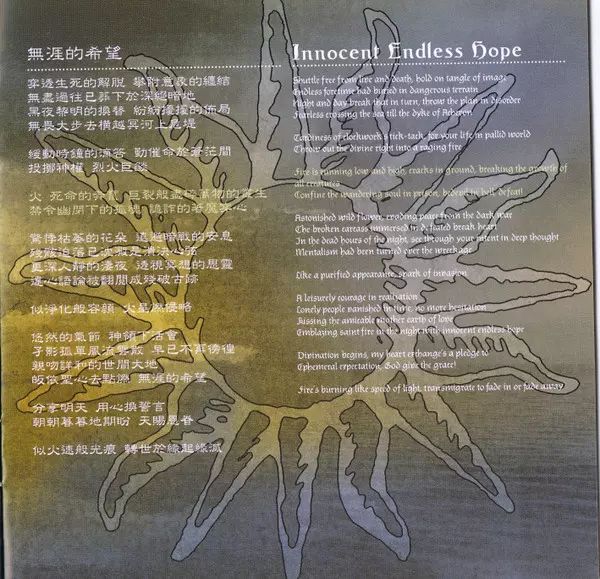 無涯的希望
穿透生死的解脫 攀附意象的纏結
無盡過往已葬下於深 暗地
黑夜黎明的換替 紛紛擾擾的佈局
無畏大步去橫越冥河上危堤
緩動時鐘的滴答 勤催命於蒼茫間
投擲神權 烈火巨燄
火 死命的奔竄 巨裂般盡破萬物的叢生
禁令幽閉下的孤魂 詭詐的 心
驚悸枯萎的花朵 遠避暗戰的安息
殘骸迫落已沈寂是潰決心碎
更深人靜的淒夜 透視冥想的思靈
違心語論被翻閱成殘破古跡
似淨化般容顏 火星燃侵略
悠然的氣節 神領下活會
孑影孤單風流雲散 早已不再徬徨
親吻詳和的世間大地
皈依聖心去點燃 無涯的希望
分享明天 用心換誓言
朝朝暮暮地期盼 天賜恩眷
似火速般光痕 轉世於緣起緣滅
Innocent Endless Hope
Shuttle free from live and death, hold on tangle of image
Endless foretime had buried in dangerous terrain
Night and day break that in turn, throw the plan in disorder
Fearless crossing the sea till the dyke of Acheron
Tardiness of clockwork, tick-tack, for your life in pallid world
Throw out the divine right into a raging fire
Fire is running low and high, cracks in ground, breaking the growth of
all creatures
Confine the wandering soul in prison, bedevil in hell, defeat!
Astonished wild flower, evading peace from the dark war
The broken carcass immersed in defeated break heart
In the dead hours of the night, see through your intent in deep thought
Mentalism had been turned over the wreckage
Like a purified appearance, spark of invasion
A leisurely courage in realization
Lonely people vanished in time, no more hesitation
Kissing the amicable mother earth of love
Emblazing saint fire in the night with innocent endless hope
Divination begins, my heart exchange's a pledge to
Ephemeral expectation, God give the grace!
Fire's burning like speed of light, transmigrate to fade in or fade away